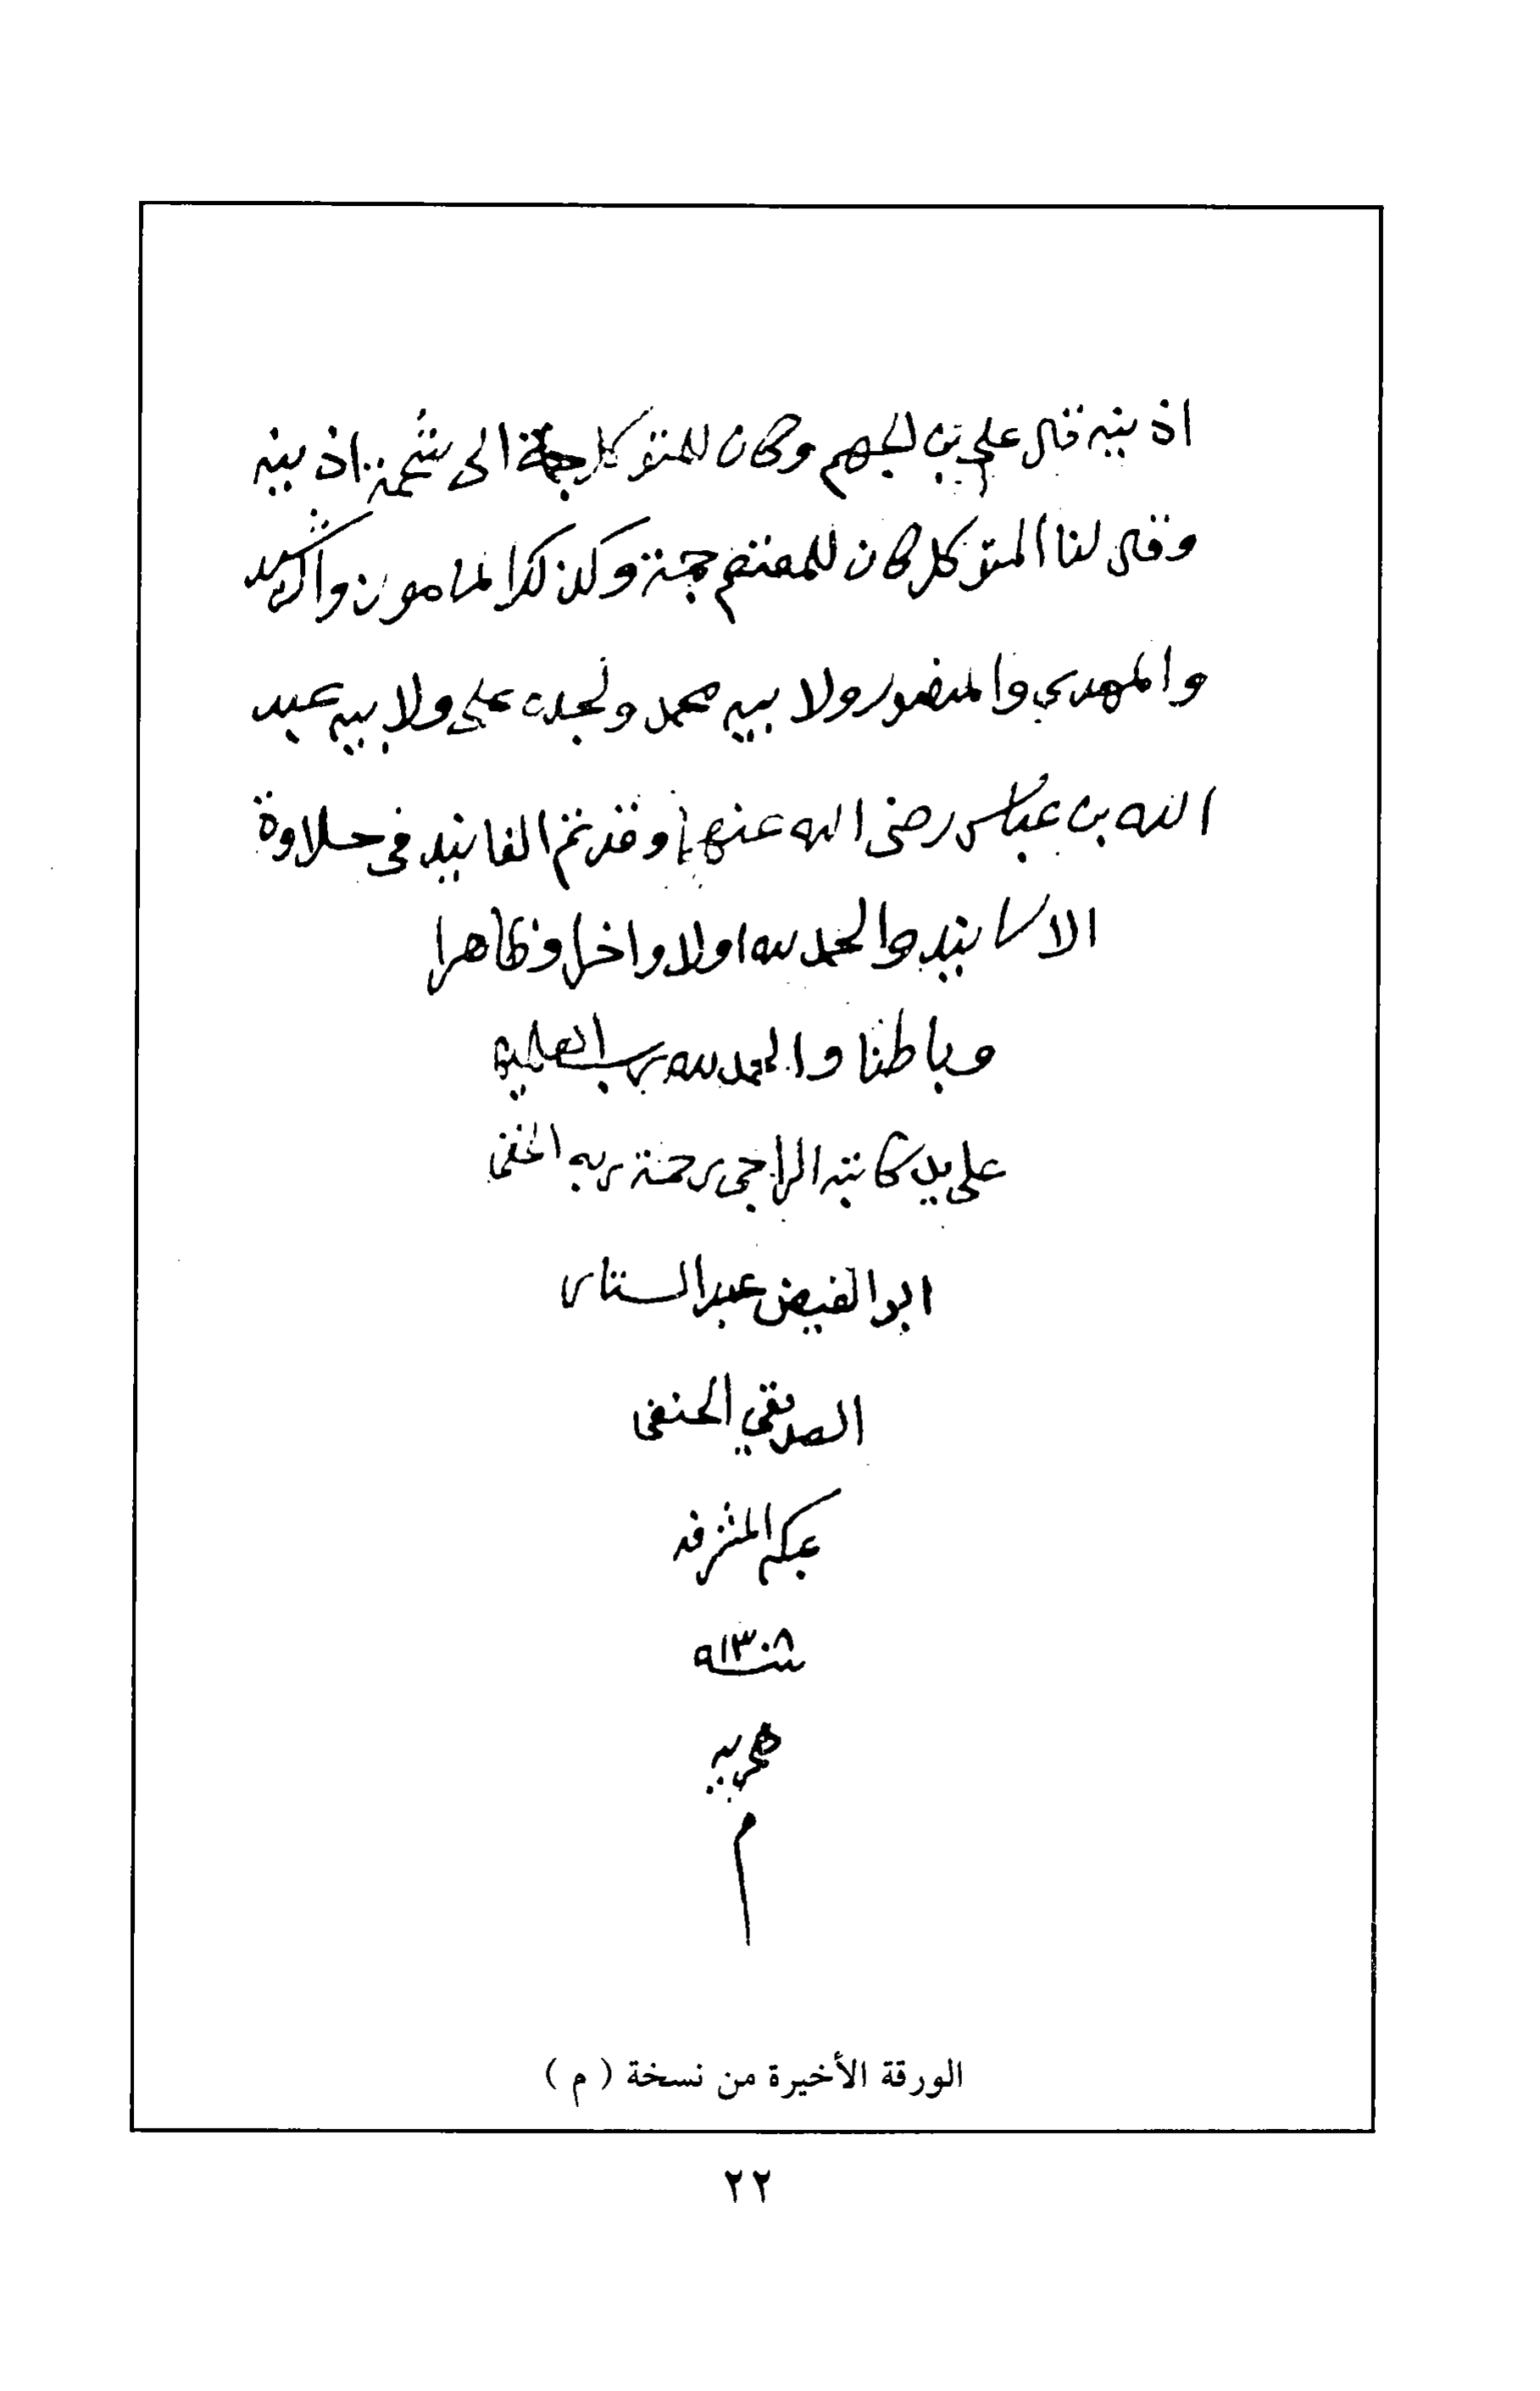 اذنيه قال علي بن الجهم وكان للمتوكل جمة الى شحمة اذنيه
وقال لنا المتوكل كان للمعتصم جمة وكذلك للمامون والرشيد
والمهدي والمنصور ولابيه محمد ولجده علي ولابيه عبد
الله بن عباس رضى الله عنهما وقد تم الفانيد فى حلاوة
الاسانيد والحمد لله اولا واخرا وظاهرا
وباطنا والحمد لله رب العلمين
على يد كاتبه الراجى رحمة ربه الخفى
ابو الفيض عبد الستار
الصديقي الحنفى
بمكه المشرفه
سنه ١٣٠٨
هجريه
م
الورقة الأخيرة من نسخة ( م )
٢٢